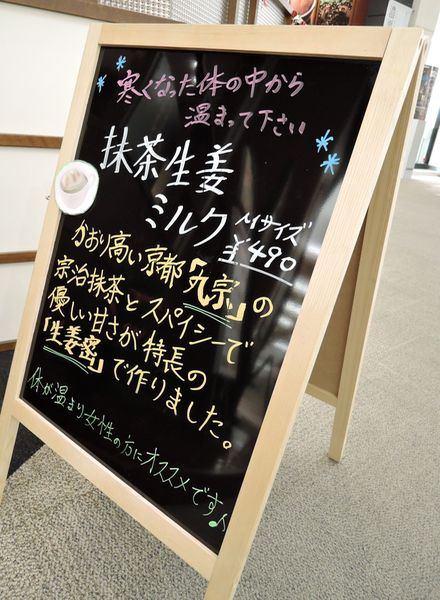 寒くなった体の中から
温まって下さい
抹茶生姜
ミルク Mサイズ
¥490
かおり高い京都「丸宗」の
宗治抹茶とスパイシーで
優しい甘さが特長の
「生姜蜜」で作りました。
体が温まり女性の方にオススメです♪